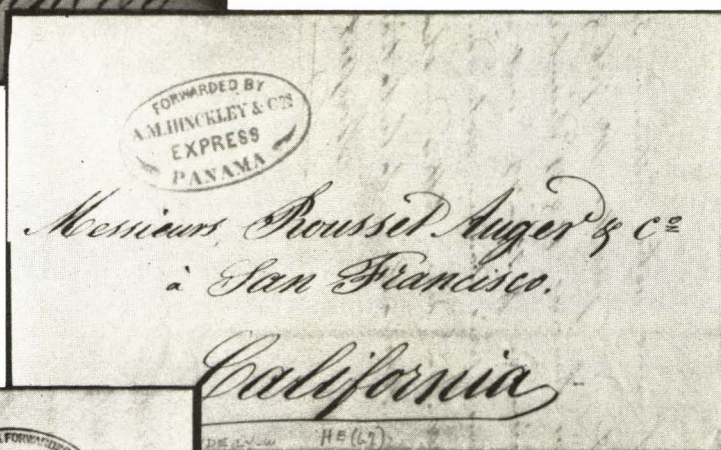 FORWARDED BY
A.M. HINCKLEY & CO'S
EXPRESS
PANAMA
Messieurs Rousset Auger & Cº
à San Francisco.
California
HE (67)
FORWARDED